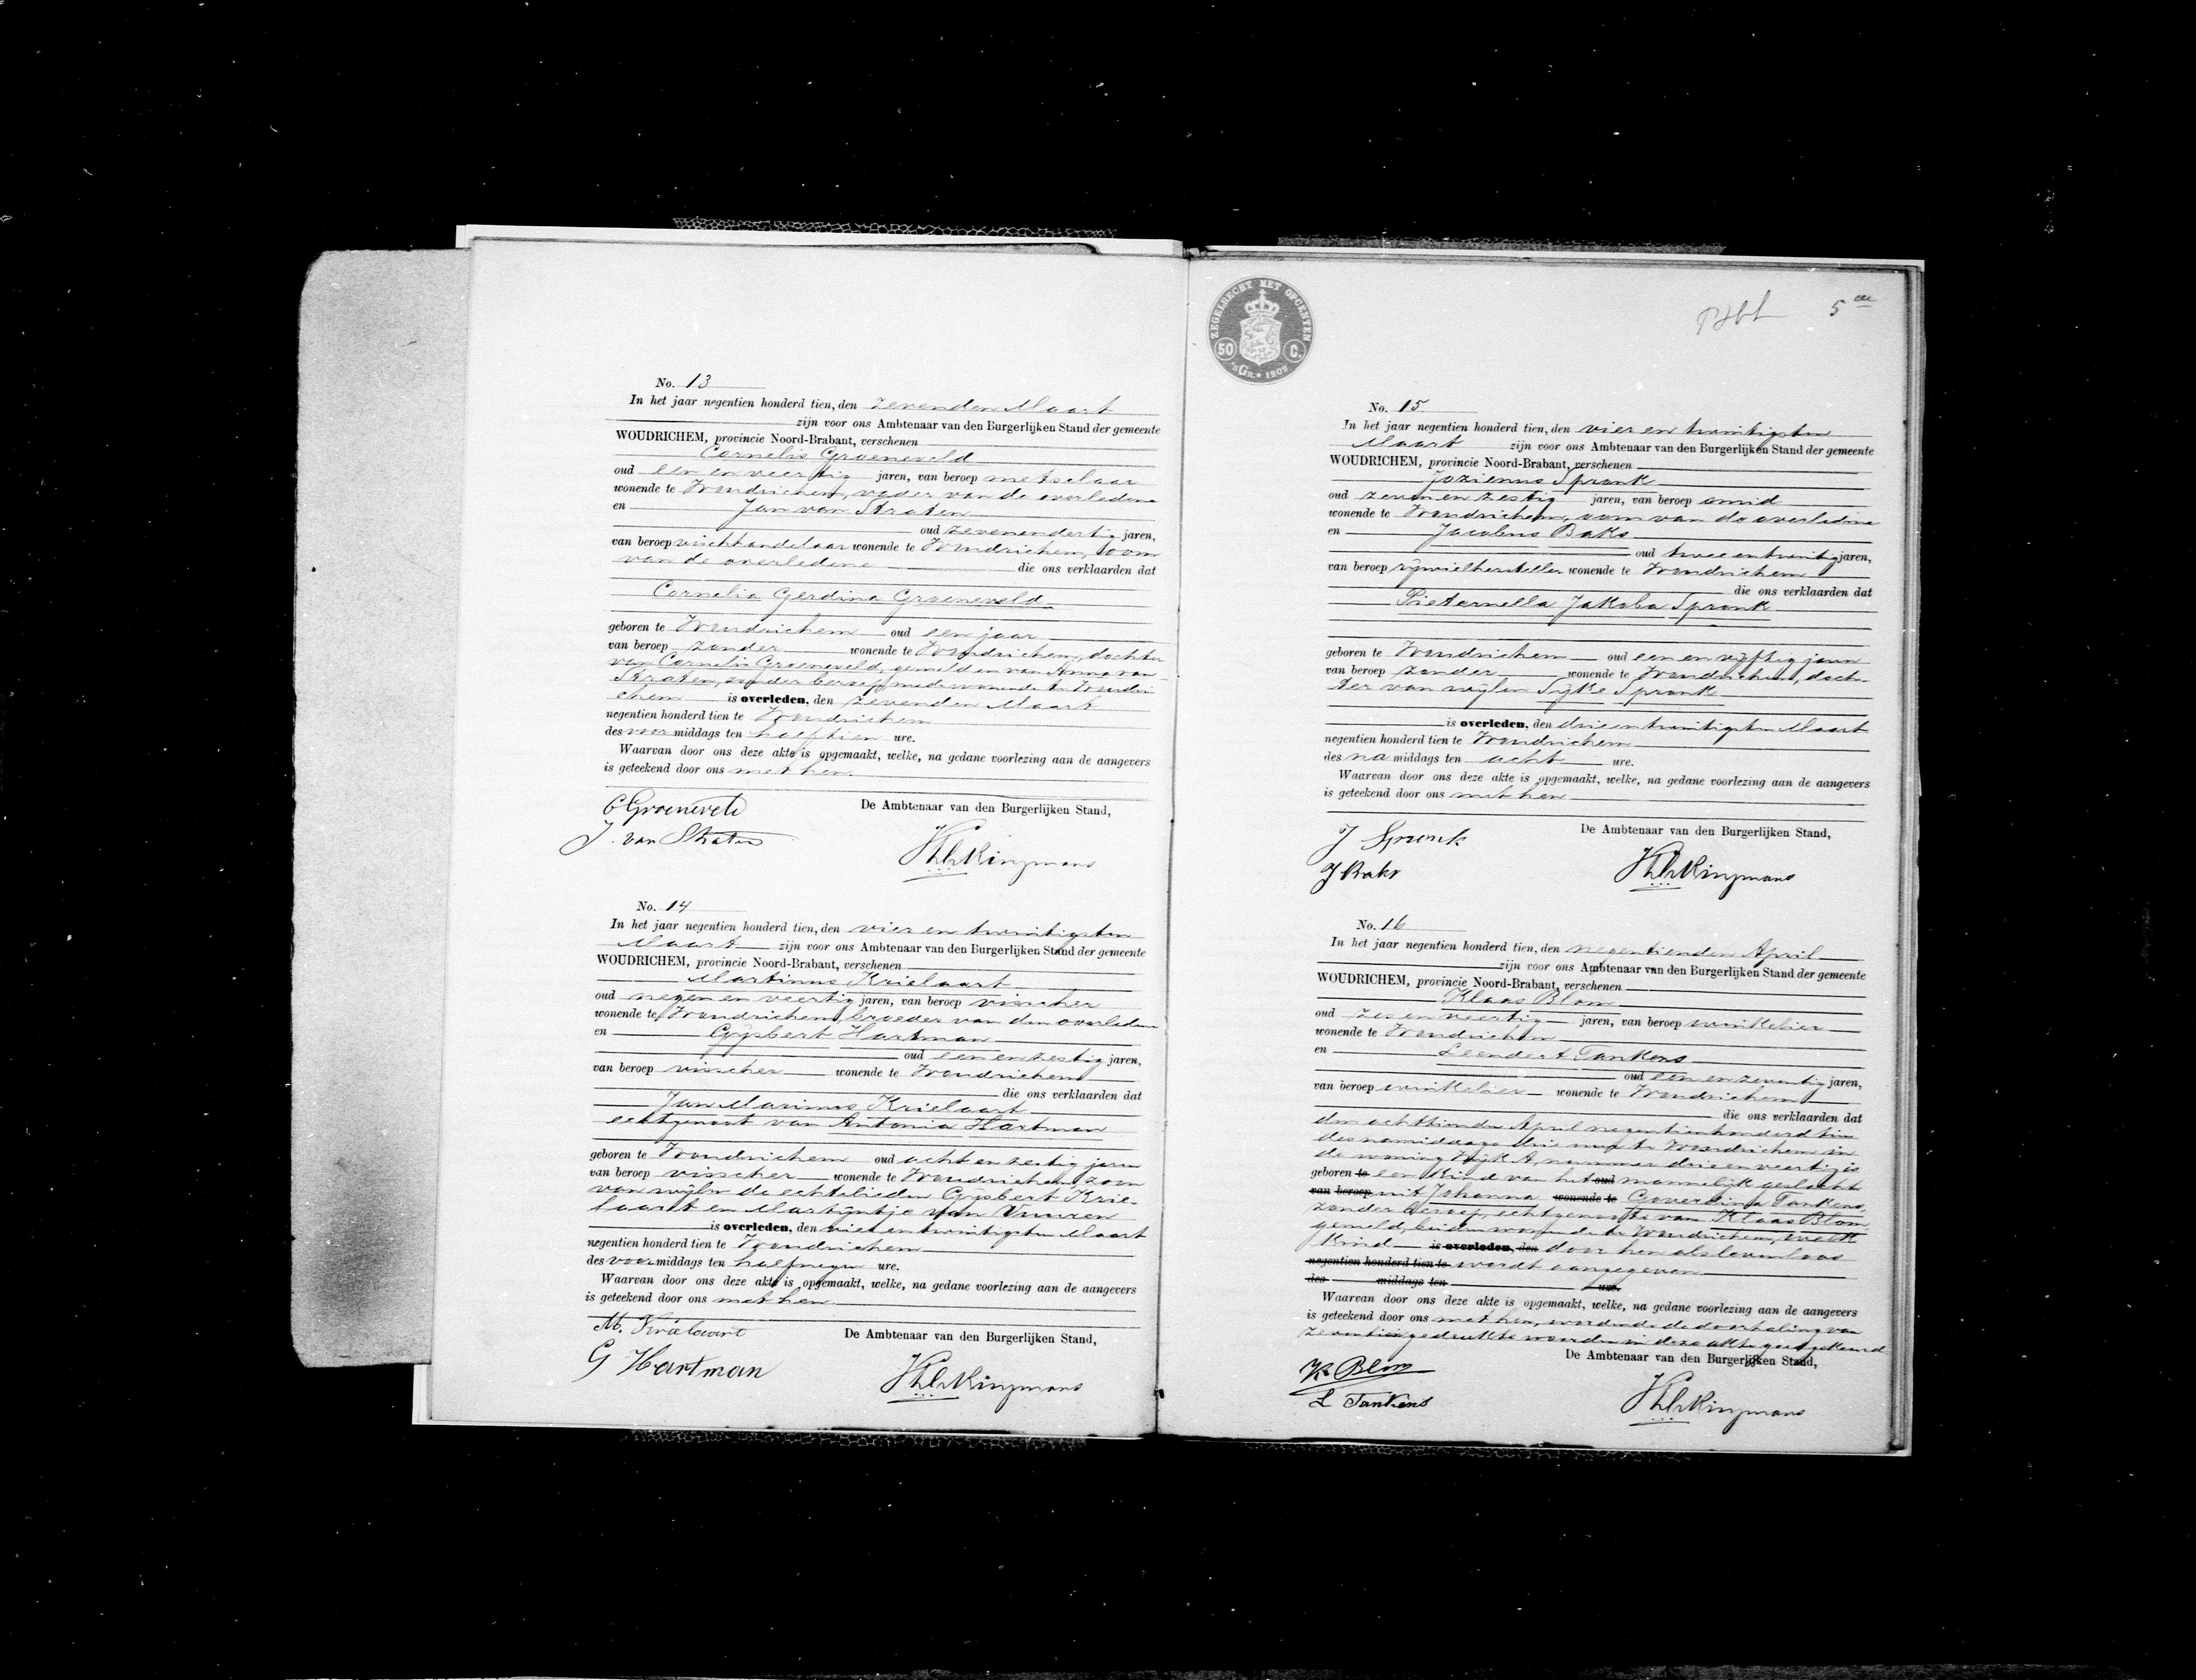 No. 13
In het jaar negentien honderd tien, den zevenden Maart
zijn voor ons Ambtenaar van den Burgerlijken Stand der gemeente
WOUDRICHEM, provincie Noord-Brabant, verschenen
Cornelis Groeneveld
oud een en veertig jaren, van beroep metselaar
wonende te Woudrichem, vader van de overledene
en Jan van Straten
oud zevenendertig jaren,
van beroep vischhandelaar wonende te Woudrichem, oom
van de overledene die ons verklaarden dat
Cornelia Gerdina Groeneveld
geboren te Woudrichem oud een jaar
van beroep zonder wonende te Woudrichem, dochter
van Cornelis Groeneveld, gemeld en van Anna van
Straten, zonder beroep, mede wonende te Woudri-
chem is overleden, den zevenden Maart
negentien honderd tien te Woudrichem
des voormiddags ten half tien ure.
Waarvan door ons deze akte is opgemaakt, welke, na gedane voorlezing aan de aangevers
is geteekend door ons met hen.
De Ambtenaar van den Burgerlijken Stand,
C Groeneveld
J. van Straten
No. 14
In het jaar negentien honderd tien, den vier en twintigsten
Maart zijn voor ons Ambtenaar van den Burgerlijken Stand der gemeente
WOUDRICHEM, provincie Noord-Brabant, verschenen
Martinus Krielaart
oud negen en veertig jaren, van beroep visscher
wonende te Woudrichem, broeder van den overledene
en Gijsbert Hartman
oud een en zestig jaren,
van beroep visscher wonende te Woudrichem
die ons verklaarden dat
Jan Marinus Krielaart
echtgenoot van Antonia Hartman
geboren te Woudrichem oud acht en zestig jaren
van beroep visscher wonende te Woudrichem, zoon
van wijlen de echtelieden Gijsbert Krie-
laart en Martijntje van Vuuren
is overleden, den vier en twintigsten Maart
negentien honderd tien te Woudrichem
des voormiddags ten half negen ure.
Waarvan door ons deze akte is opgemaakt, welke, na gedane voorlezing aan de aangevers
is geteekend door ons met hen.
M. Krielaart
De Ambtenaar van den Burgerlijken Stand,
G Hartman
ZEGELRECHT MET OPCENTEN
50 C.
'sGR. 1909
5de
No. 15
In het jaar negentien honderd tien, den vier en twintigsten
Maart zijn voor ons Ambtenaar van den Burgerlijken Stand der gemeente
WOUDRICHEM, provincie Noord-Brabant, verschenen
Jozienus Spronk
oud zeven en zestig jaren, van beroep smid
wonende te Woudrichem, oom van de overledene
en Jacobus Baks
oud twee en twintig jaren,
van beroep rijwielhersteller wonende te Woudrichem
die ons verklaarden dat
Pieternella Jakoba Spronk
geboren te Woudrichem oud een en vijftig jaren
van beroep zonder wonende te Woudrichem, doch-
ter van wijlen Sijke Spronk
is overleden, den drie en twintigsten Maart
negentien honderd tien te Woudrichem
des namiddags ten acht ure.
Waarvan door ons deze akte is opgemaakt, welke, na gedane voorlezing aan de aangevers
is geteekend door ons met hen
De Ambtenaar van den Burgerlijken Stand,
J Spronk
J Baks
No. 16
In het jaar negentien honderd tien, den negentienden April
zijn voor ons Ambtenaar van den Burgerlijken Stand der gemeente
WOUDRICHEM, provincie Noord-Brabant, verschenen
Klaas Blom
oud zes en veertig jaren, van beroep winkelier
wonende te Woudrichem
en Leendert Tankens
oud een en zeventig jaren,
van beroep winkelier wonende te Woudrichem
die ons verklaarden dat
den achttienden April negentienhonderd tien
des namiddags drie ure te Woudrichem in
de woning Wijk A, nummer drie en veertig is
geboren te een kind van het oud mannelijk geslacht
van beroep uit Johanna wonende te Goverdina Tankens,
zonder beroep, echtgenoote van Klaas Blom,
gemeld, beiden wonende te Woudrichem, welk
kind is overleden, den door hen als levenloos
negentien honderd tien te wordt aangegeven
des middags ten ure.
Waarvan door ons deze akte is opgemaakt, welke, na gedane voorlezing aan de aangevers
is geteekend door ons met hen, wordende de doorhaling van
zeventien gedrukte woorden in deze akte goedgekeurd.
De Ambtenaar van den Burgerlijken Stand,
K Blom
L Tankens